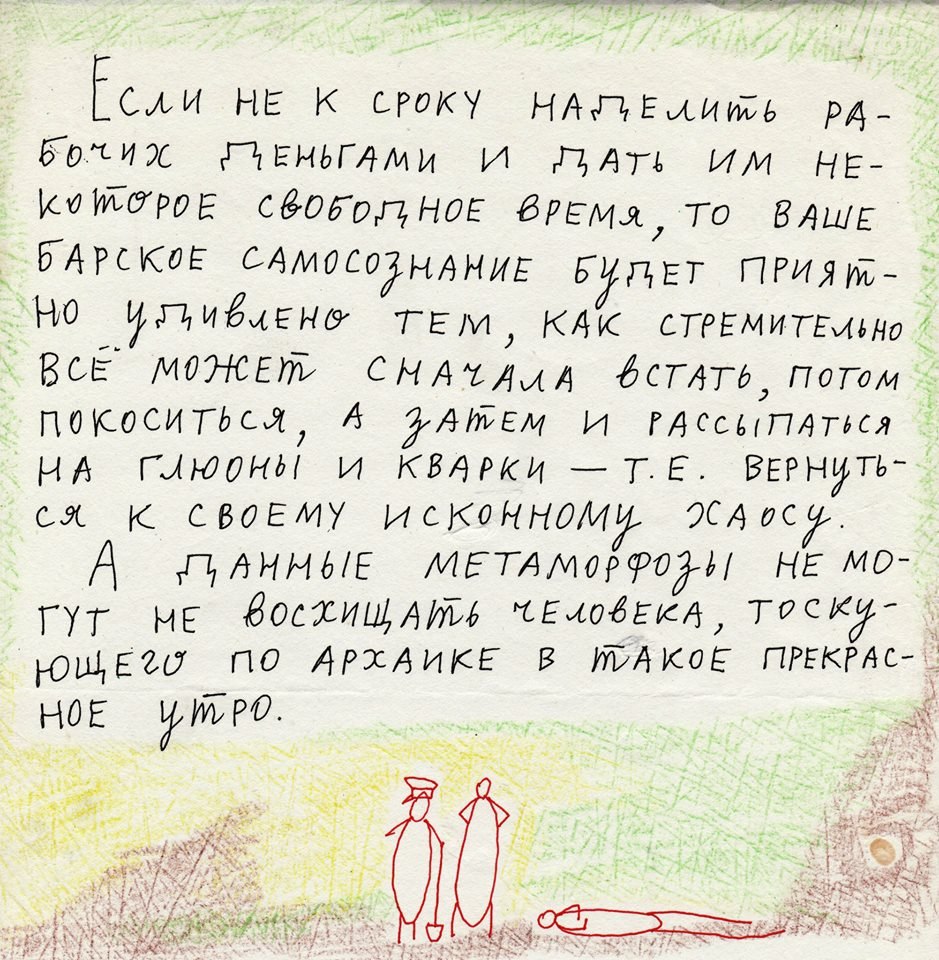 Если не к сроку наделить ра-
бочих деньгами и дать им не-
которое свободное время, то ваше
барское самосознание будет прият-
но удивлено тем, как стремительно
всё может сначала встать, потом
покоситься, а затем и рассыпаться
на глюоны и кварки — т.е. вернуть-
ся к своему исконному хаосу.
А данные метаморфозы не мо-
гут не восхищать человека, тоску-
ющего по архаике в такое прекрас-
ное утро.